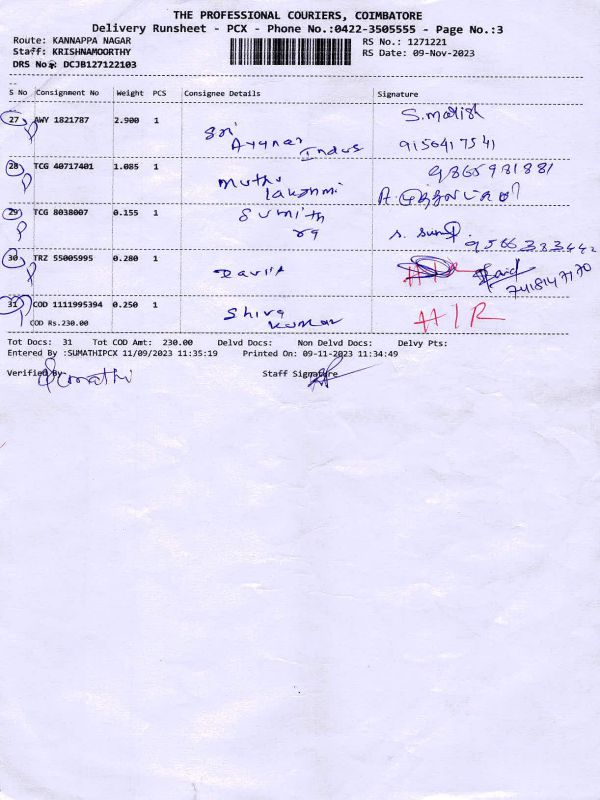 THE PROFESSIONAL COURIERS, COIMBATORE
Delivery Runsheet - PCX - Phone No.:0422-3505555 - Page No.:3
Route: KANNAPPA NAGAR RS No.: 1271221
Staff: KRISHNAMOORTHY RS Date: 09-Nov-2023
DRS No.: DCJB127122103
S No Consignment No Weight PCS Consignee Details Signature
27 AWY 1821787 2.900 1 Sri Ayynar Indus S.matish
9156417541
28 TCG 40717401 1.085 1 muthu lakshmi 9865981881
29 TCG 8038007 0.155 1 Sumith ra S. Sumi
9566333442
30 TRZ 55005995 0.280 1 David
7418147170
31 COD 1111995394 0.250 1 Shiva kumar HIR
COD Rs.230.00
Tot Docs: 31 Tot COD Amt: 230.00 Delvd Docs: Non Delvd Docs: Delvy Pts:
Entered By :SUMATHIPCX 11/09/2023 11:35:19 Printed On: 09-11-2023 11:34:49
Verified By: Staff Signature